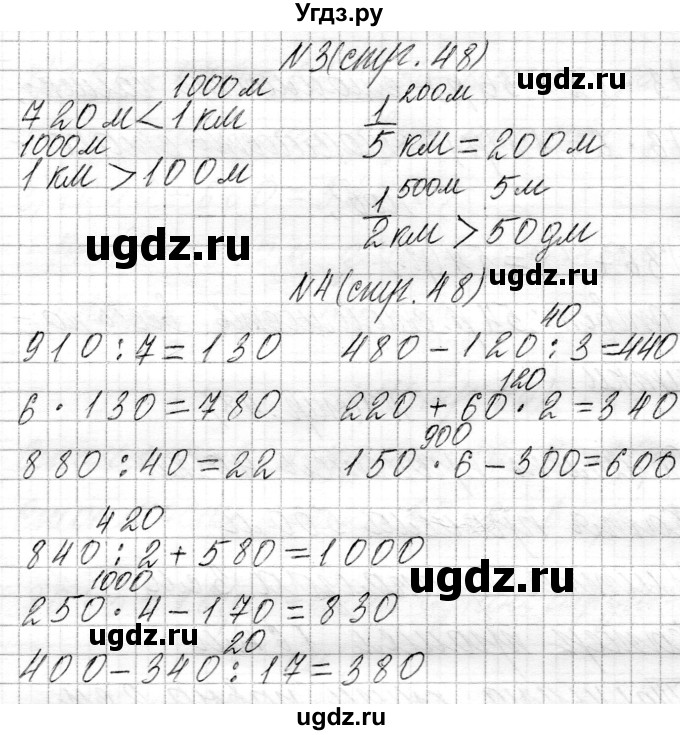 Угдз.ру
N3(стр. 48)
1000м
720м < 1 км
1000м
1 км > 100м
200м
1/5 км = 200м
500м 5м
1/2 км > 50дм
ugdz.ru
ugdz.ru
ugdz.ru
ugdz.ru
N4(стр. 48)
910 : 7 = 130
6 · 130 = 780
880 : 40 = 22
40
480 - 120 : 3 = 440
120
220 + 60 · 2 = 340
900
150 · 6 - 300 = 600
420
840 : 2 + 580 = 1000
1000
250 · 4 - 170 = 830
20
400 - 340 : 17 = 380
ugdz.ru
ugdz.ru
ugdz.ru
ugdz.ru